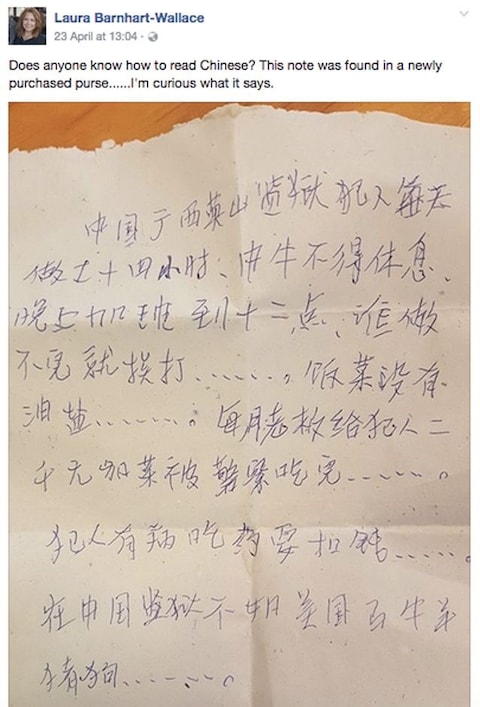 Laura Barnhart-Wallace
23 April at 13:04 ·
Does anyone know how to read Chinese? This note was found in a newly
purchased purse......I'm curious what it says.
中国广西英山监狱犯人每天
做工十四小时、中午不得休息、
晚上加班到十二点、谁做
不完就挨打……。饭菜没有
油盐……。每月老板给犯人二
千元加菜被警察吃完……。
犯人有病吃药要扣钱……。
在中国监狱不如美国马牛羊
猪狗……。